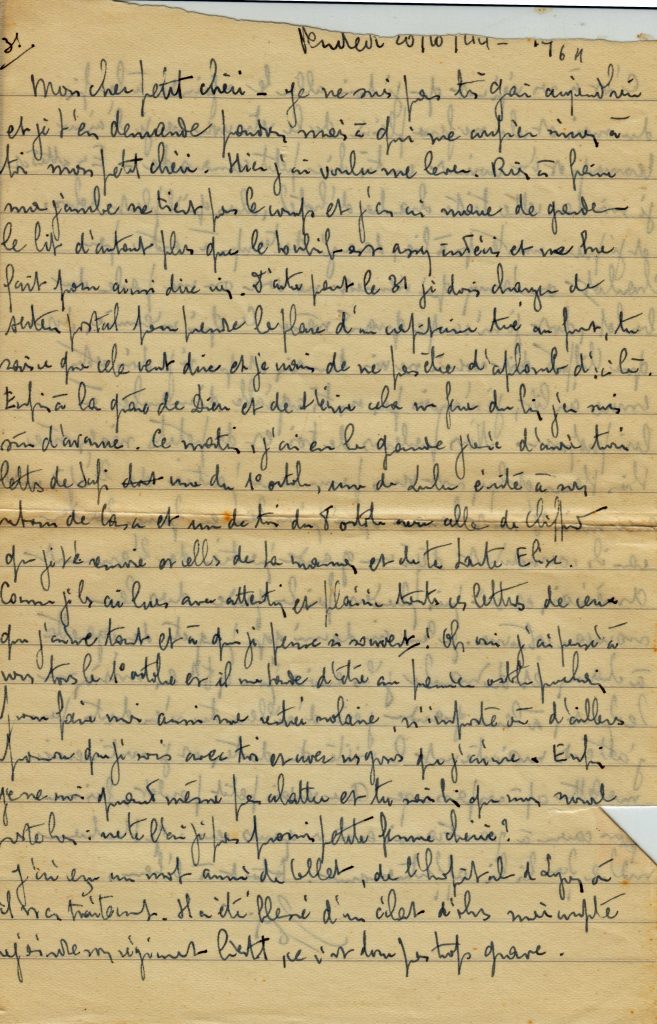 3.
Vendredi 20/10/44 -
Mon cher petit chéri - Je ne suis pas très gai aujourd'hui
et je t'en demande pardon, mais à qui me confier sinon à
toi mon petit chéri. Hier j'ai voulu me lever. Rien à faire
ma jambe ne tient pas le coup et j'en ai marre de garder
le lit d'autant plus que le toubib est assez et ne me
fait pour ainsi dire rien. D'autre part le 31 je dois changer de
secteur postal pour prendre la place d'un capitaine tué au front, tu
sais ce que cela veut dire et je crains de ne pas être d'aplomb d'ici là.
Enfin à la grâce de Dieu et de cela se fera du j'en suis
sûr d'avance. Ce matin, j'ai eu la grande joie d'avoir trois
lettres de dont une du 1° octobre, une de Lulu écrite à son
retour de Casa et une de toi du 8 octobre avec celle de
que je t'ai renvoyée et celles de ta maman et de ta tante Elise.
Comme je les ai lues avec attention et plaisir toutes ces lettres de ceux
que j'aime tant et à qui je pense si souvent ! Oh oui j'ai pensé à
vous tous le 1° octobre et il me tarde d'être au premier octobre prochain
pour faire moi aussi ma rentrée scolaire, n'importe où d'ailleurs
pourvu que je sois avec toi et avec nos gones que j'aime. Enfin
je ne suis quand même pas abattu et tu sais bien que mon moral
restera bon : ne te l'ai-je pas promis petite femme chérie ?
J'ai eu un mot aussi de Collet, de l'hopital de Lyon où
il est en traitement. Il a été blessé d'un éclat d'obus mais compte
rejoindre son régiment bientôt, ce n'est donc pas trop grave.